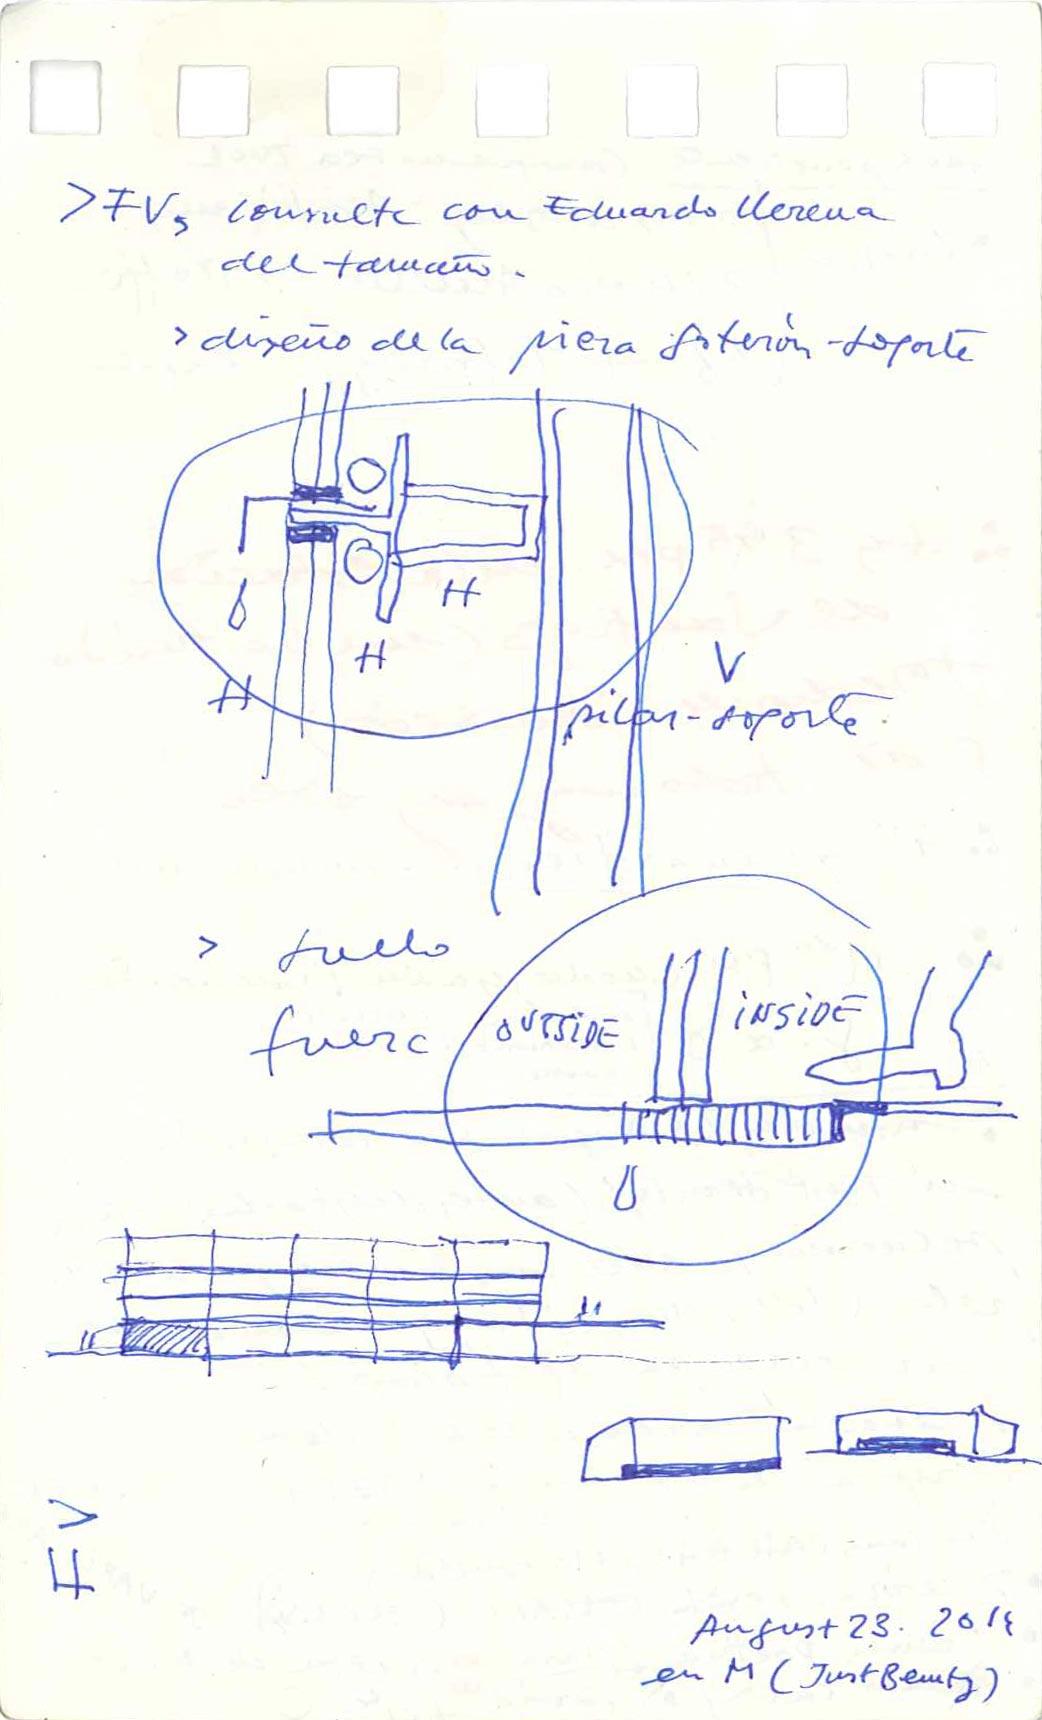 > FV, consulte con Eduardo Llerena
del tamaño.
> diseño de la pieza esterón-soporte
H
H
H
V
pilar-soporte.
> suelo
fuera
OUTSIDE
INSIDE
>
H
August 23. 2014
en M (Just Beauty)